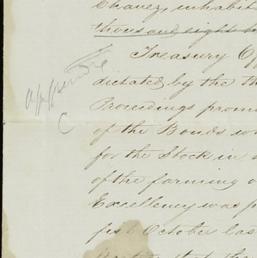 Chavez, inhabit
thousand eight h
Treasury Of
dictated by the th
Proceedings prom
of the Bonds
for the Stock in
of the farming o
Excellency was p
first October las
C